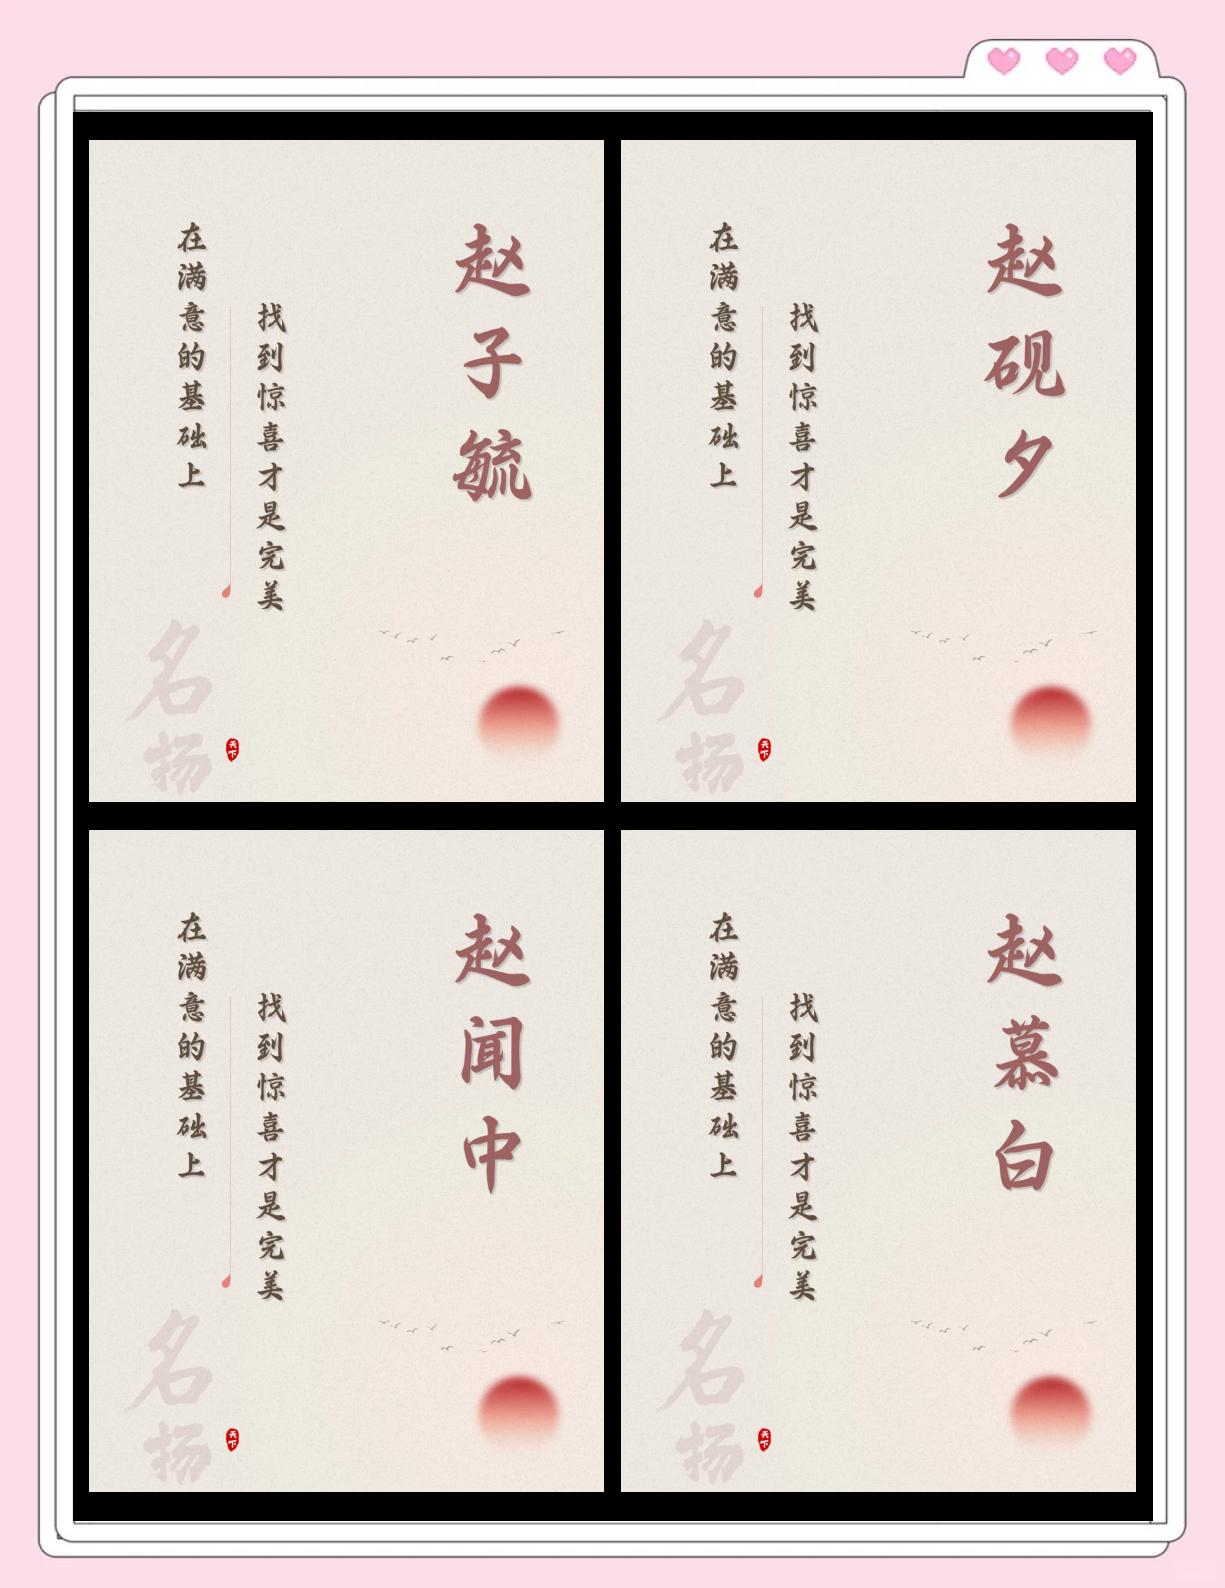 赵子毓
在满意的基础上
找到惊喜才是完美
名扬
天下
赵砚夕
在满意的基础上
找到惊喜才是完美
名扬
天下
赵闻中
在满意的基础上
找到惊喜才是完美
名扬
天下
赵慕白
在满意的基础上
找到惊喜才是完美
名扬
天下